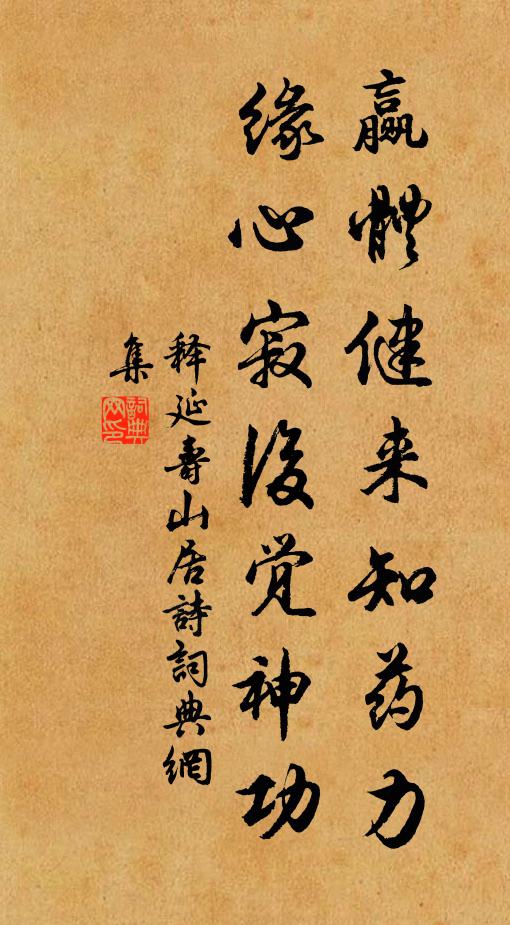 羸體健来知药力
缘心寂後觉神功
释延壽山居詩詞典網
集
詞典网印